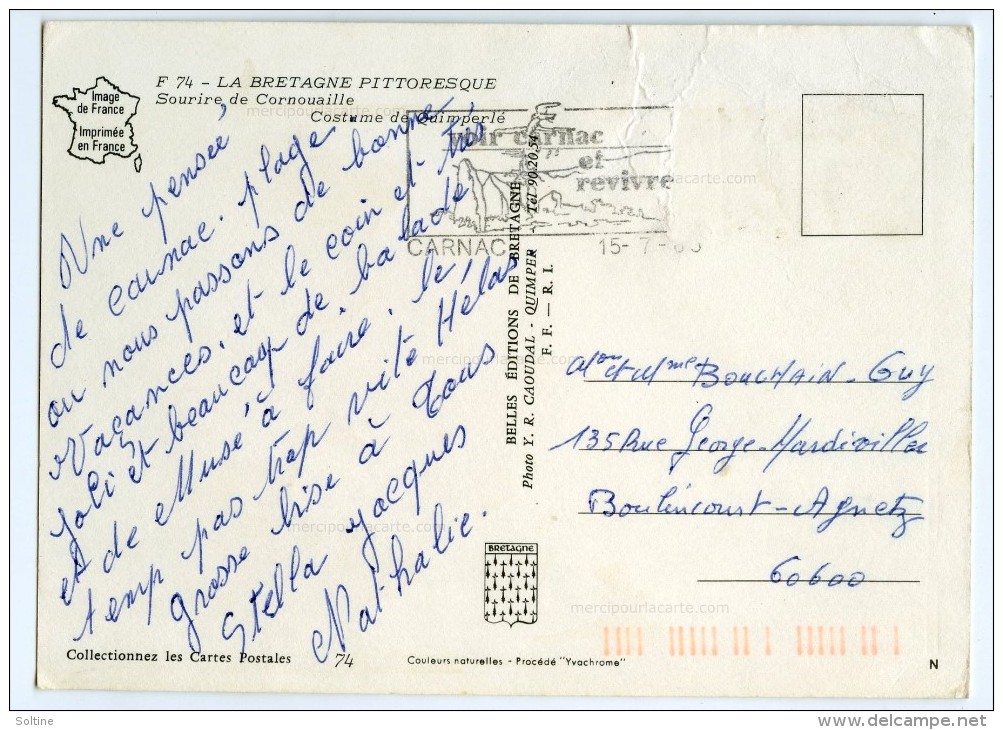 Image
de France
Imprimée
en France
F 74 - LA BRETAGNE PITTORESQUE
Sourire de Cornouaille
Costume de Quimperlé
voir carnac
et
revivre
CARNAC 15-7-
Une pensée
de carnac. plage
ou nous passons de bonne
vacances. et le coin et très
joli et beaucoup de balade
et de Musé à faire. le
temp pas trop vite Hélas
grosse bise à Tous
Stella Jacques
Nathalie.
BELLES ÉDITIONS DE BRETAGNE
Photo Y. R. CAOUDAL - QUIMPER - Tél 90.20.54
F. F. — R. I.
Mon et Mme BOUCHAIN-GUY
135 Rue George-Hardiviller
Boulincourt-Agnetz
60600
BRETAGNE
Collectionnez les Cartes Postales
74
Couleurs naturelles - Procédé "Yvachrome"
N
mercipourlacarte.com
mercipourlacarte.com
mercipourlacarte.com
mercipourlacarte.com
mercipourlacarte.com
mercipourlacarte.com
Soltine
delcampe.net